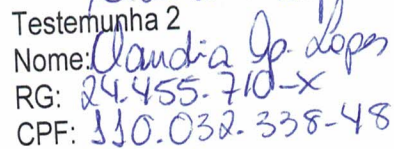 Testemunha 2
Nome: Claudia Ap. Lopes
RG: 24.455.710-X
CPF: 110.032.338-48